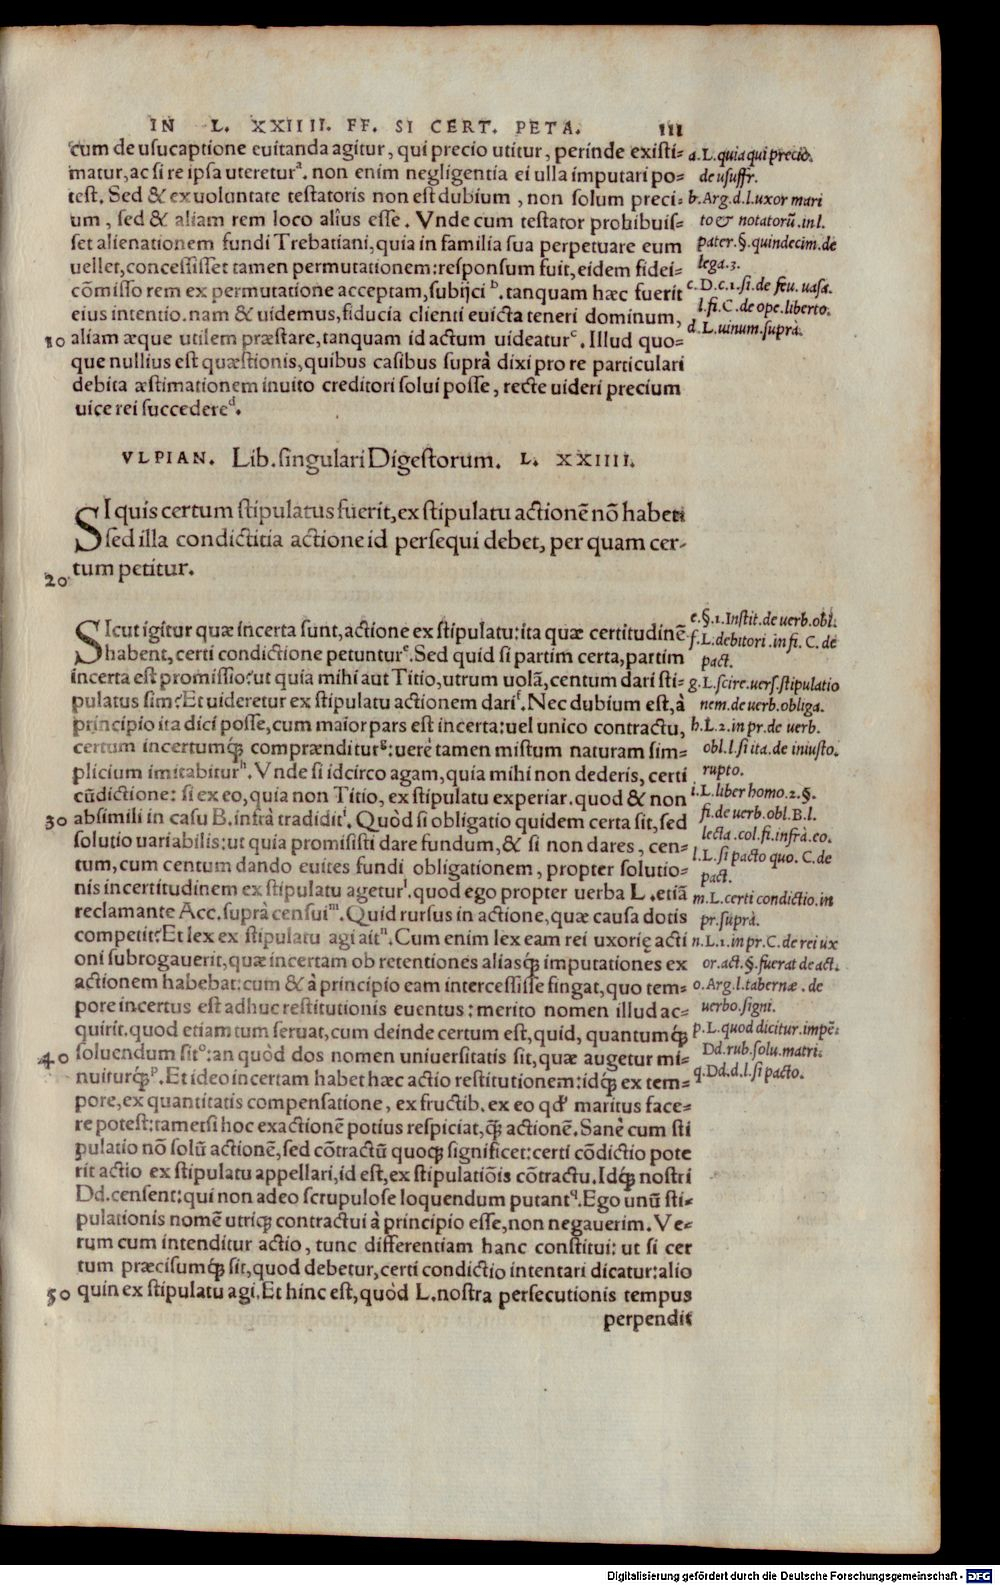 IN L. XXIIII. FF. SI CERT. PETA. III
cum de usucaptione euitanda agitur, qui precio utitur, perinde existi-
matur, ac si re ipsa uteretur<sup>a</sup>. non enim negligentia ei ulla imputari po-
test. Sed & ex uoluntate testatoris non est dubium, non solum preci-
um, sed & aliam rem loco alius esse. Vnde cum testator prohibuis-
set alienationem fundi Trebatiani, quia in familia sua perpetuare eum
uellet, concessisset tamen permutationem: responsum fuit, eidem fidei-
cõmisso rem ex permutatione acceptam, subijci<sup>b</sup>. tanquam hæc fuerit
eius intentio. nam & uidemus, fiducia clienti euicta teneri dominum,
10 aliam æque utilem præstare, tanquam id actum uideatur<sup>c</sup>. Illud quo-
que nullius est quæstionis, quibus casibus suprà dixi pro re particulari
debita æstimationem inuito creditori solui posse, recte uideri precium
uice rei succedere<sup>d</sup>.
a. L. quia qui precio.
de usuffr.
b. Arg. d. l. uxor mari
to & notatorũ. in l.
pater. §. quindecim. de
lega. 3.
c. D. c. 1. si. de feu. uasa.
l. fi. C. de ope. liberto.
d. L. uinum. suprà.
VLPIAN. Lib. singulari Digestorum. L. XXIIII.
SI quis certum stipulatus fuerit, ex stipulatu actionẽ nõ habet:
sed illa condictitia actione id persequi debet, per quam cer-
20 tum petitur.
SIcut igitur quæ incerta sunt, actione ex stipulatu: ita quæ certitudinẽ
habent, certi condictione petuntur<sup>e</sup>. Sed quid si partim certa, partim
incerta est promissio: ut quia mihi aut Titio, utrum uolã, centum dari sti-
pulatus sim? Et uideretur ex stipulatu actionem dari<sup>f</sup>. Nec dubium est, à
principio ita dici posse, cum maior pars est incerta: uel unico contractu,
certum incertumq́; comprænditur<sup>g</sup>: uerè tamen mistum naturam sim-
plicium imitabitur<sup>h</sup>. Vnde si idcirco agam, quia mihi non dederis, certi
cũdictione: si ex eo, quia non Titio, ex stipulatu experiar. quod & non
30 absimili in casu B. infrà tradidit<sup>i</sup>. Quòd si obligatio quidem certa sit, sed
solutio uariabilis: ut quia promisisti dare fundum, & si non dares, cen-
tum, cum centum dando euites fundi obligationem, propter solutio-
nis incertitudinem ex stipulatu agetur<sup>l</sup>. quod ego propter uerba L. etiã
reclamante Acc. suprà censui<sup>m</sup>. Quid rursus in actione, quæ causa dotis
competit? Et lex ex stipulatu agi ait<sup>n</sup>. Cum enim lex eam rei uxorię acti
oni subrogauerit, quæ incertam ob retentiones aliasq́; imputationes ex
actionem habebat: cum & à principio eam intercessisse fingat, quo tem-
pore incertus est adhuc restitutionis euentus: merito nomen illud ac-
quirit. quod etiam tum seruat, cum deinde certum est, quid, quantumq́;
40 soluendum sit<sup>o</sup>: an quòd dos nomen uniuersitatis sit, quæ augetur mi-
nuiturq́;<sup>p</sup>. Et ideo incertam habet hæc actio restitutionem: idq́; ex tem-
pore, ex quantitatis compensatione, ex fructib. ex eo qđ maritus face-
re potest: tametsi hoc exactionẽ potius respiciat, q̃; actionẽ. Sanè cum sti
pulatio nõ solũ actionẽ, sed cõtractũ quoq; significet: certi cõdictio pote
rit actio ex stipulatu appellari, id est, ex stipulatiõis cõtractu. Idq́; nostri
Dd. censent: qui non adeo scrupulose loquendum putant<sup>q</sup>. Ego unũ sti-
pulationis nomẽ utriq; contractui à principio esse, non negauerim. Ve-
rum cum intenditur actio, tunc differentiam hanc constitui: ut si cer
tum præcisumq́; sit, quod debetur, certi condictio intentari dicatur: alio
50 quin ex stipulatu agi. Et hinc est, quòd L. nostra persecutionis tempus
perpendit
e. §. 1. Instit. de uerb. obl.
f. L. debitori. in fi. C. de
pact.
g. L. scire. uers. stipulatio
nem. de uerb. obliga.
h. L. 2. in pr. de uerb.
obl. l. si ita. de iniusto.
rupto.
i. L. liber homo. 2. §.
fi. de uerb. obl. B. l.
lecta. col. fi. infrà. eo.
l. L. si pacto quo. C. de
pact.
m. L. certi condictio. in
pr. suprà.
n. L. 1. in pr. C. de rei ux
or. act. §. fuerat de act.
o. Arg. l. tabernæ. de
uerbo. signi.
p. L. quod dicitur. impẽ.
Dd. rub. solu. matri.
q. Dd. d. l. si pacto.
Digitalisierung gefördert durch die Deutsche Forschungsgemeinschaft - DFG